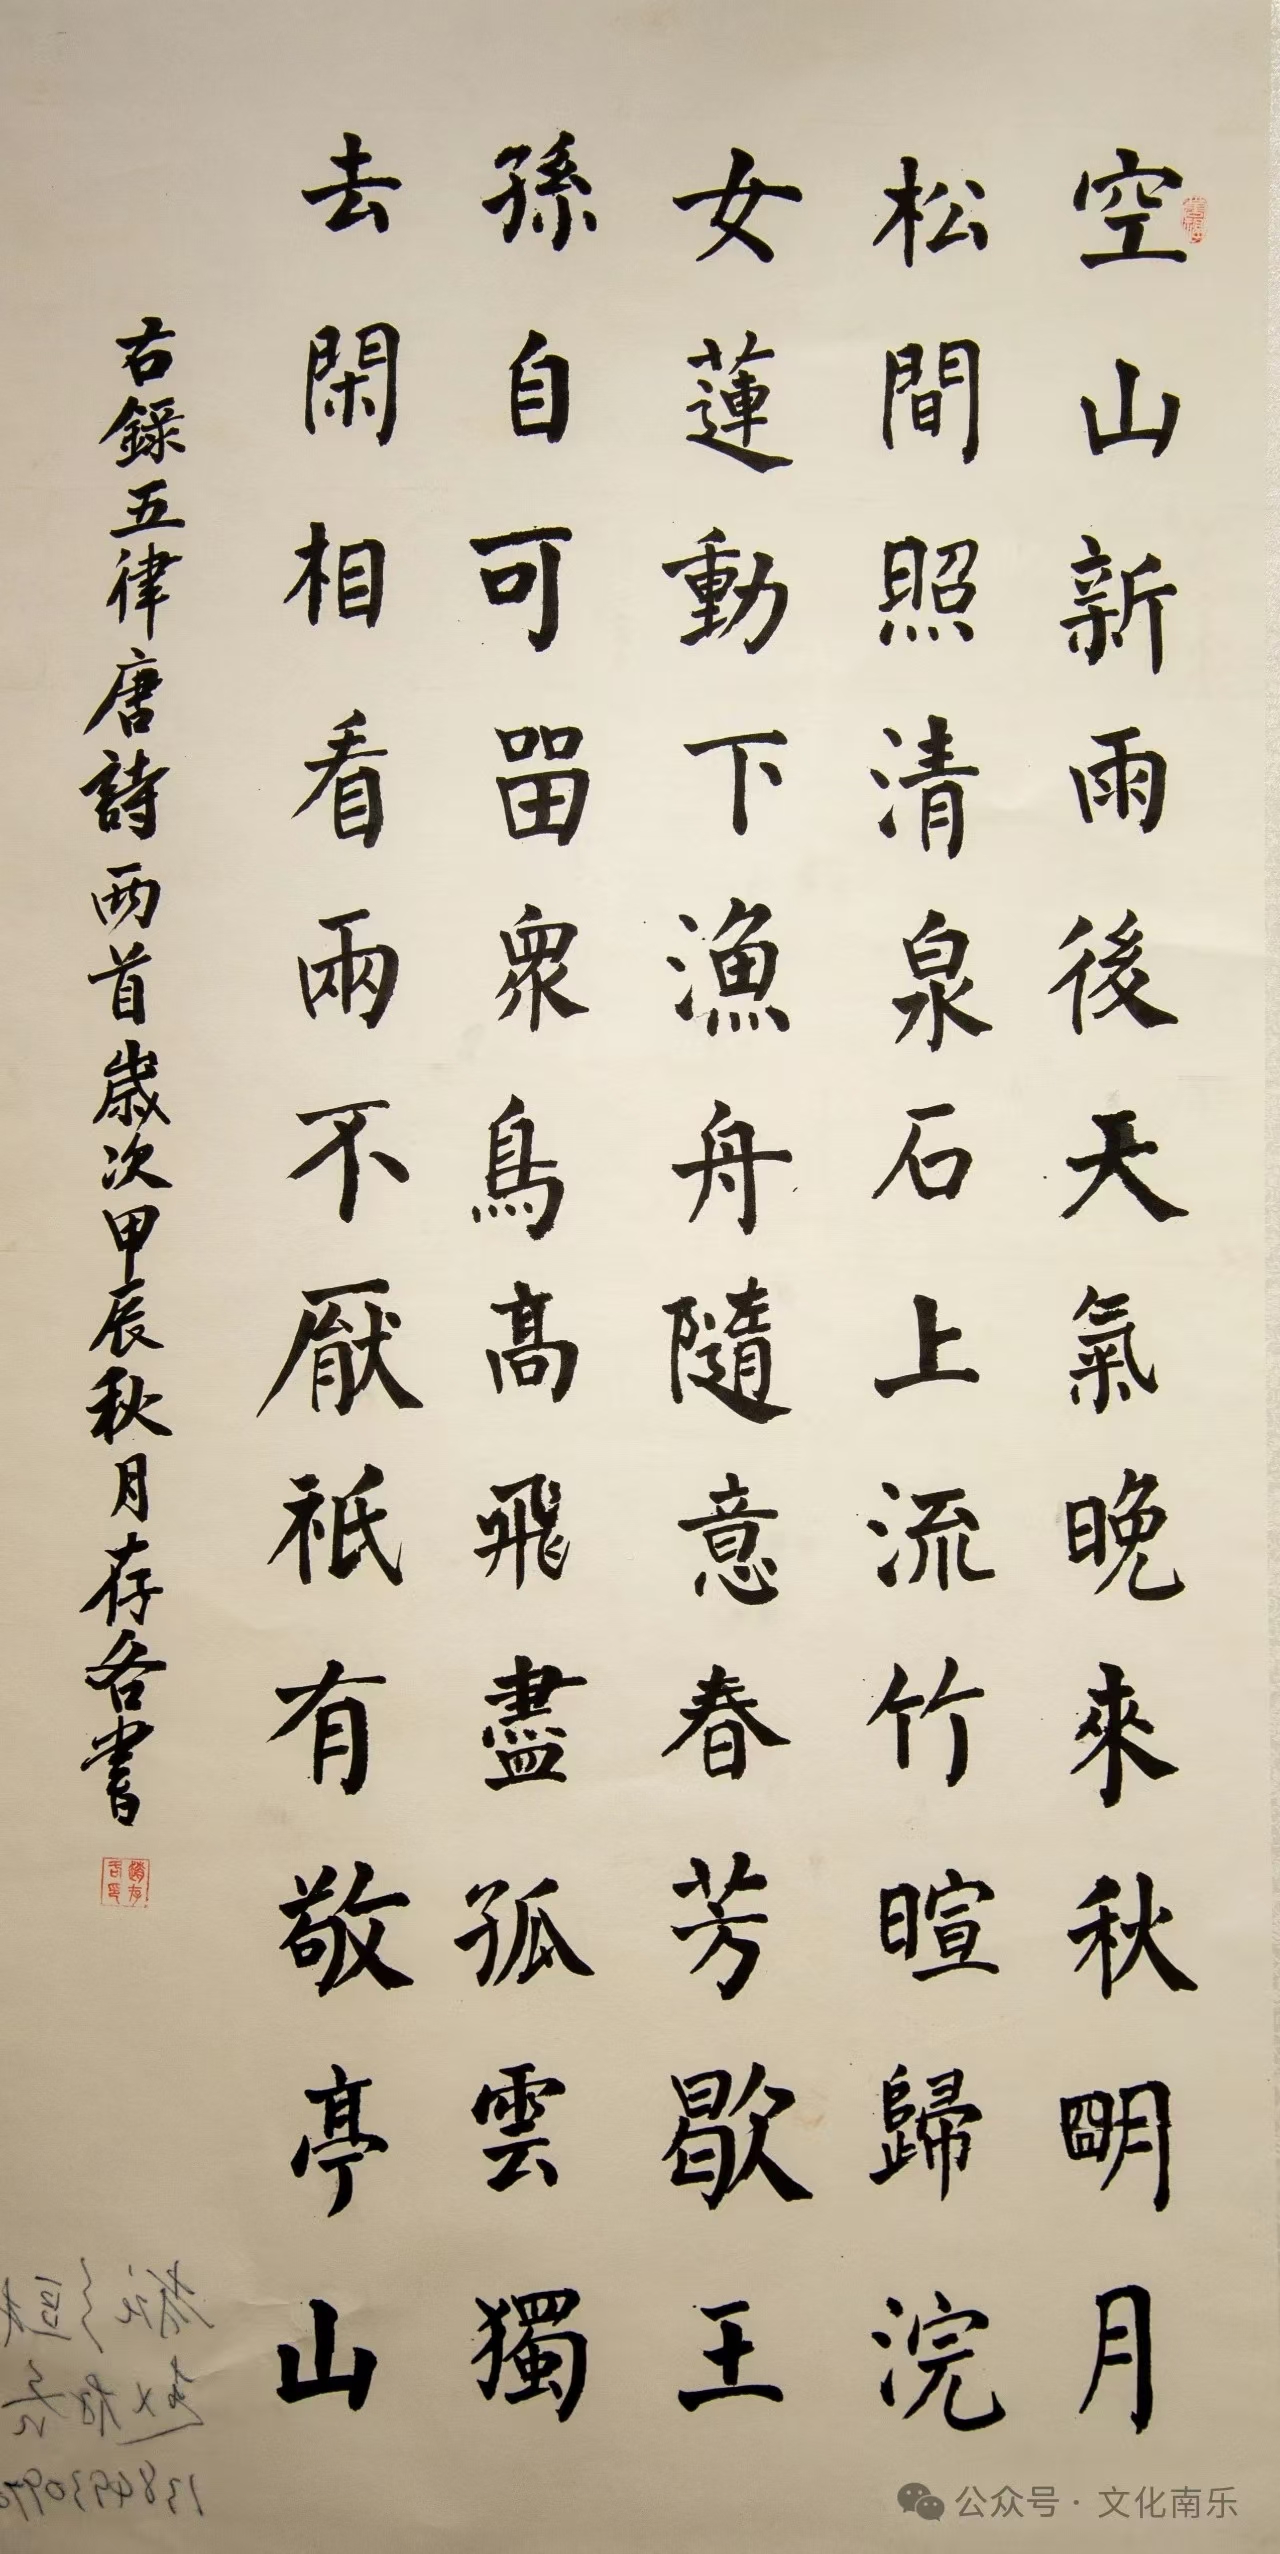 空山新雨後天氣晚來秋明月
松間照清泉石上流竹暄歸浣
女蓮動下漁舟隨意春芳歇王
孫自可留眾鳥高飛盡孤雲獨
去閑相看兩不厭祇有敬亭山
右錄五律唐詩两首歲次甲辰秋月存各書
公众号·文化南乐